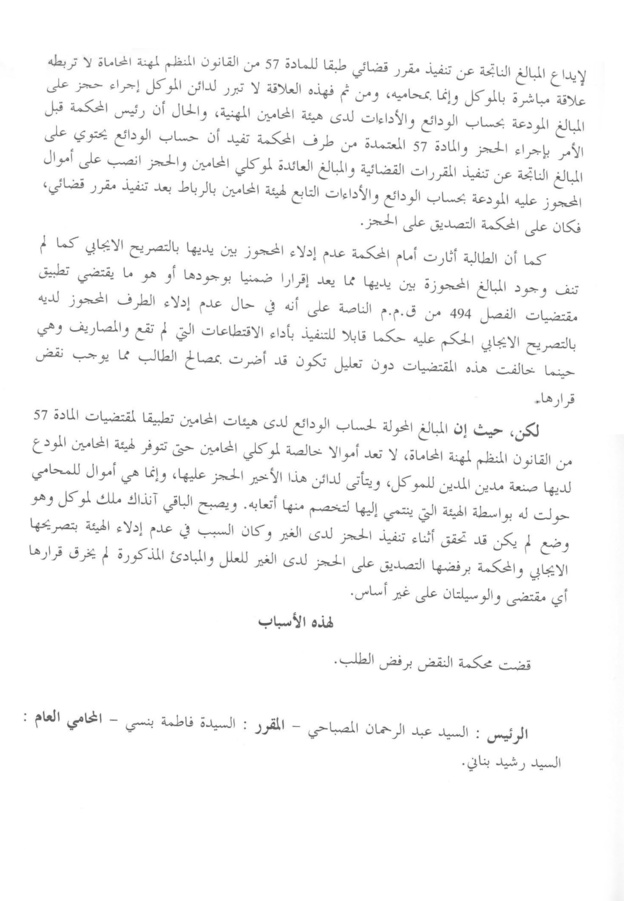 لإيداع المبالغ الناتجة عن تنفيذ مقرر قضائي طبقا للمادة 57 من القانون المنظم لمهنة المحاماة لا تربطه
علاقة مباشرة بالموكل وإنما بمحاميه، ومن ثم فهذه العلاقة لا تبرر لدائن الموكل إجراء حجز على
المبالغ المودعة بحساب الودائع والأداءات لدى هيئة المحامين المهنية، والحال أن رئيس المحكمة قبل
الأمر بإجراء الحجز والمادة 57 المعتمدة من طرف المحكمة تفيد أن حساب الودائع يحتوي على
المبالغ الناتجة عن تنفيذ المقررات القضائية والمبالغ العائدة لموكلي المحامين والحجز انصب على أموال
المحجوز عليه المودعة بحساب الودائع والأداءات التابع لهيئة المحامين بالرباط بعد تنفيذ مقرر قضائي،
فكان على المحكمة التصديق على الحجز.
كما أن الطالبة أثارت أمام المحكمة عدم إدلاء المحجوز بين يديها بالتصريح الايجابي كما لم
تنف وجود المبالغ المحجوزة بين يديها مما يعد إقرارا ضمنيا بوجودها أو هو ما يقتضي تطبيق
مقتضيات الفصل 494 من ق.م.م الناصة على أنه في حال عدم إدلاء الطرف المحجوز لديه
بالتصريح الايجابي الحكم عليه حكما قابلا للتنفيذ بأداء الاقتطاعات التي لم تقع والمصاريف وهي
حينما خالفت هذه المقتضيات دون تعليل تكون قد أضرت بمصالح الطالب مما يوجب نقض
قرارها.
لكن، حيث إن المبالغ المحولة لحساب الودائع لدى هيئات المحامين تطبيقا لمقتضيات المادة 57
من القانون المنظم لمهنة المحاماة، لا تعد أموالا خالصة لموكلي المحامين حتى تتوفر لهيئة المحامين المودع
لديها صنعة مدين المدين للموكل، ويتأتى لدائن هذا الأخير الحجز عليها، وإنما هي أموال للمحامي
حولت له بواسطة الهيئة التي ينتمي إليها لتخصم منها أتعابه. ويصبح الباقي آنذاك ملك لموكل وهو
وضع لم يكن قد تحقق أثناء تنفيذ الحجز لدى الغير وكان السبب في عدم إدلاء الهيئة بتصريحها
الايجابي والمحكمة برفضها التصديق على الحجز لدى الغير للعلل والمبادئ المذكورة لم يخرق قرارها
أي مقتضى والوسيلتان على غير أساس.
لهذه الأسباب
قضت محكمة النقض برفض الطلب.
الرئيس : السيد عبد الرحمان المصباحي – المقرر : السيدة فاطمة بنسي – المحامي العام :
السيد رشيد بناني.